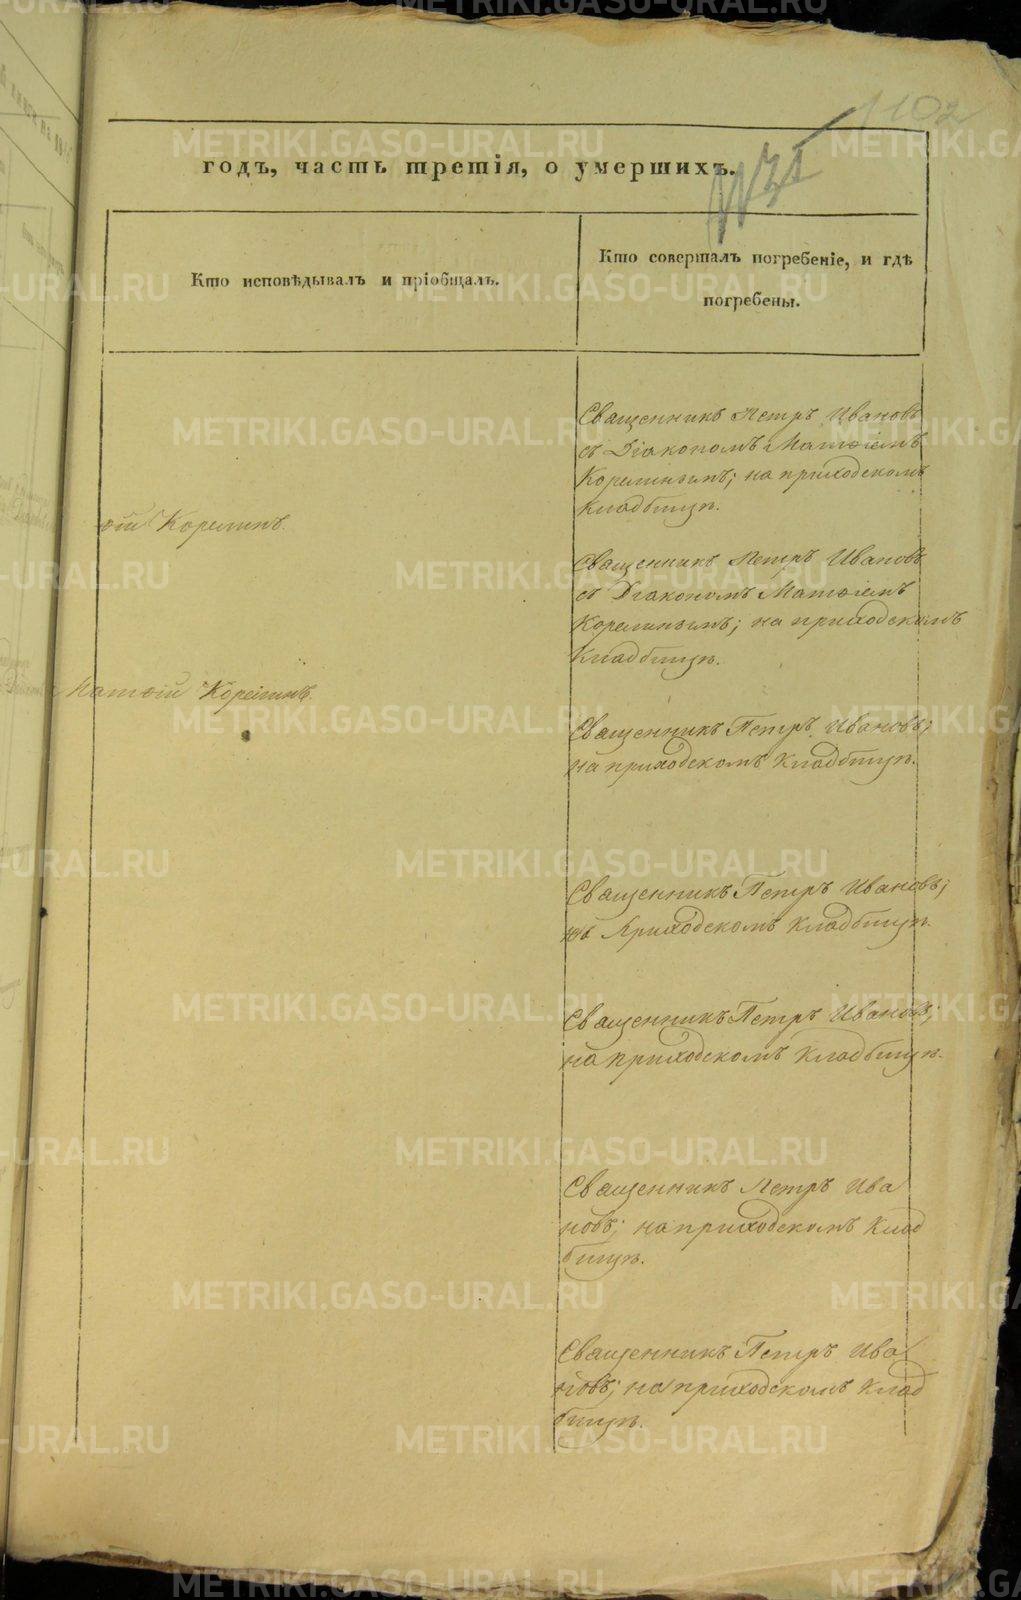 102
годъ, часть третія, о умершихъ.
Кто исповѣдывалъ и пріобщалъ.
Кто совершалъ погребеніе, и гдѣ
погребены.
Священникъ Петръ Ивановъ
съ Діакономъ Матѳіемъ
Корелинымъ; на приходскомъ
кладбищѣ.
ѳій Корелинъ.
Священникъ Петръ Ивановъ
съ Діакономъ Матѳіемъ
Корелинымъ; на приходскомъ
кладбищѣ.
Матѳій Корелинъ.
Священникъ Петръ Ивановъ;
на приходскомъ кладбищѣ.
Священникъ Петръ Ивановъ;
на Приходскомъ кладбищѣ.
Священникъ Петръ Ивановъ;
на приходскомъ кладбищѣ.
Священникъ Петръ Ива
новъ; на приходскомъ клад
бищѣ.
Священникъ Петръ Ива
новъ; на приходскомъ клад
бищѣ.
METRIKI.GASO-URAL.RU